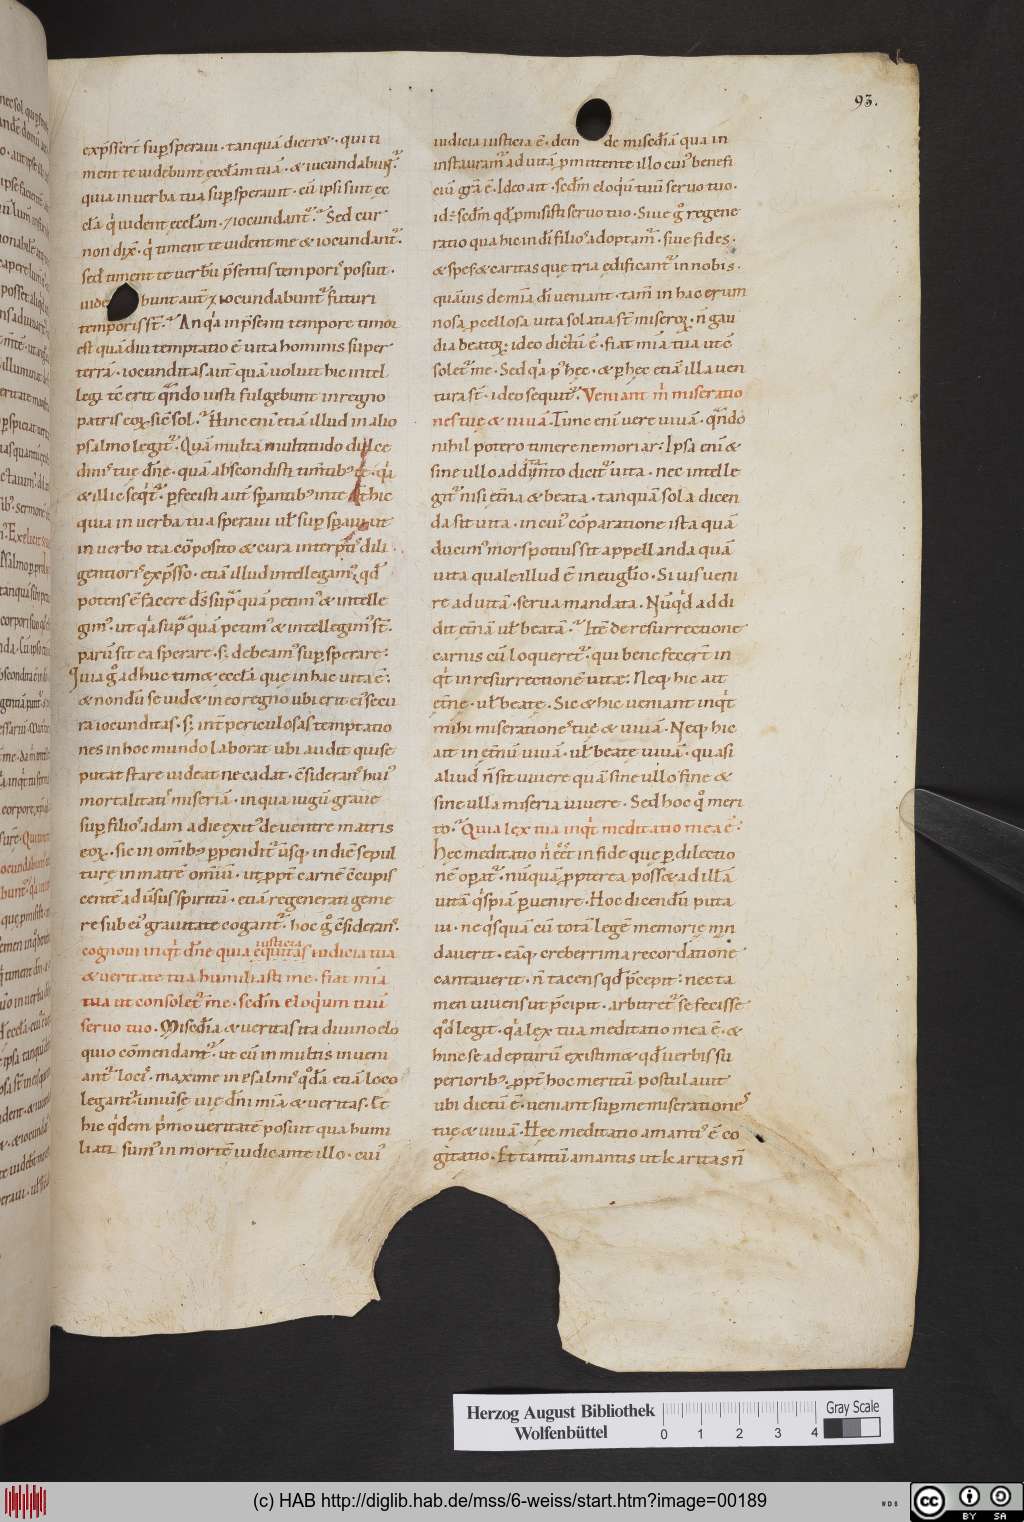 93.
exp̄sser̄t sup̱speraui · tanquā dicer&. qui ti
ment te uidebunt eccl̄am tuā · & iocundabunt᷑.
quia in uerba tua sup̱speraui. cū ipsi sint ec
cl̄a q̇ uident eccl̄am · ⁊ iocundant᷑. Sed cur
non dix̄ · q̇ timent te uident me & iocundant᷑.
sed timent te uerbū p̄sentis temporis posuit ·
uide bunt aut̄ ⁊ iocundabunt᷑ futuri
temporis st̄. An qa in p̄senti tempore timor
est quādiu temptatio ē uita hominis super
terrā · iocunditas aut̄ quā uoluit hic intel
legi tc̄ erit qn̄do iusti fulgebunt in regno
patris eoꝝ sic̄ sol. Hinc eni etiā illud in alio
psalmo legit᷑. Quā multa multitudo dulce
dinis tuę dn̄e · quā abscondisti tim̄tib; te · qa
& illic seqt᷑ · p̱fecisti aut̄ sp̱antib; in te & hic
quia in uerba tua speraui ul̄ sup̱ sp̱aui ut
in uerbo ita cōposito & cura interp̱ti dili
gentioris exp̄sso · etiā illud intellegam; qd̄
potens ē facere d̄s sup̱ quā petim; & intelle
gim; · ut qa sup̱ quā petim; & intellegim; st̄.
parū sit ea sperare · s; debeam; sup̱sperare:
Quia g̊ adhuc tim& eccl̄a quę in hac uita ē:
& nondū se uid& in eo regno ubi erit ei secu
ra iocunditas · s; int̄ periculosas temptatio
nes in hoc mundo laborat ubi audit qui se
putat stare uideat ne cadat · c̄siderans hui;
mortalitatis miseriā · in qua iugū graue
sup̱ filios adam a die exit; de uentre matris
eoꝝ · sic in om̄ib; p̱pendit᷑ usq; in diē sepul
turę in matrē omniū · ut p̱pt̄ carnē c̄cupis
centē aduersus spiritū · etiā regenerati geme
re sub ei; grauitate cogant᷑. hoc g̊ c̄siderans.
cognoui inqt̄ dn̄e quia equitas iudicia tua
iusticia
& ueritate tua humiliasti me · fiat mīa
tua ut consolet᷑ me · sedm̄ eloqium tuū
seruo tuo. Misedīa & ueritas ita diuino elo
quio cōmendant᷑. ut cū in multis inueni
ant᷑ locis · maxime in psalmis qd̄ā etiā loco
legant᷑ uniuersę uię dn̄i mīa & ueritas. Et
hic qdem p̄mo ueritatē posuit qua humi
liati sum; in mortē iudicante illo · cui;
iudicia iusticia ē · dein de misedīā qua in
instauram; ad uitā p̱mittente illo cui; benefi
ciū gr̄a ē. Ideo ait · sedm̄ eloqū tuū seruo tuo ·
id; sedm̄ qd̄ p̱misisti seruo tuo. Siue g̊ regene
ratio qua hic in dī filios adoptam̄ · siue fides ·
& spes & caritas quę tria ędificant᷑ in nobis ·
quāuis de mīa dī ueniant · tam̄ in hac erum
nosa p̱cellosa uita solatia st̄ miseroꝝ. n̄ gau
dia beatoꝝ: ideo dictū ē · fiat mīa tua ut c̄
solet᷑ me. Sed qa p; hęc · & p̱ hęc etiā illa uen
tura st̄ · ideo sequit᷑. Veniant m̄ miseratio
nes tuę & uiuā. Tunc eni uere uiuā · qn̄do
nihil potero timere ne moriar: Ipsa eni &
sine ullo additamto dicit᷑ uita · nec intelle
git᷑ nisi etn̄a & beata · tanquā sola dicen
da sit uita · in cui; cōparatione ista quā
ducim; mors potius sit appellanda quā
uita quale illud ē in eugl̄io. Si uis ueni
re ad uitā · serua mandata. Nūqd̄ addi
dit etn̄ā ul̄ beatā. Ite de resurrectione
carnis cū loqueret᷑ · qui bene fecer̄t in
qt̄ in resurrectionē uitæ: Neq; hic ait
etn̄ę · ul̄ beatę. Sic & hic ueniant inqt̄
mihi miserationes tuę & uiuā. Neq; hic
ait in etn̄ū uiuā · ul̄ beatę uiuā · quasi
aliud n̄ sit uiuere quā sine ullo fine &
sine ulla miseria uiuere. Sed hoc qo meri
to. Quia lex tua inqt̄ meditatio mea ē.
Hęc meditatio n̄ eēt in fide quę p̱ dilectio
nē op̱at᷑ · nūquā p̱pterea poss& ad illā
uitā qspiā p̱uenire. Hoc dicendū puta
ui · ne qsquā cū totā legē memorię mn
dauerit · eāq; creberrima recordatione
cantauerit · n̄ tacens qd̄ p̄cepit: nec ta
men uiuens ut p̄cipit · arbitret᷑ se fecisse
qd̄ legit · qa lex tua meditatio mea ē · &
hinc se adepturū existim& qd̄ uerbis su
perioris; p̱pt̄ hoc meritū postulauit
ubi dictū ē · ueniant sup̱ me miserationes
tuę & uiuā. Hęc meditatio amantis ē co
gitatio. Et tantū amantis ut karitas n̄
Herzog August Bibliothek
Wolfenbüttel
Gray Scale
0 1 2 3 4
(c) HAB http://diglib.hab.de/mss/6-weiss/start.htm?image=00189
cc BY SA